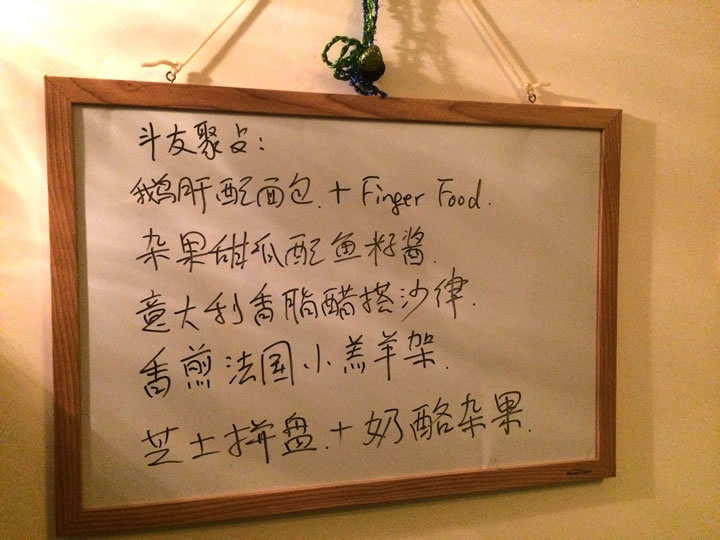 斗友聚点：
鹅肝配面包.+Finger Food.
杂果甜瓜配鱼籽酱.
意大利香脂醋搭沙律.
香煎法国小羔羊架.
芝士拼盘.+奶酪杂果.